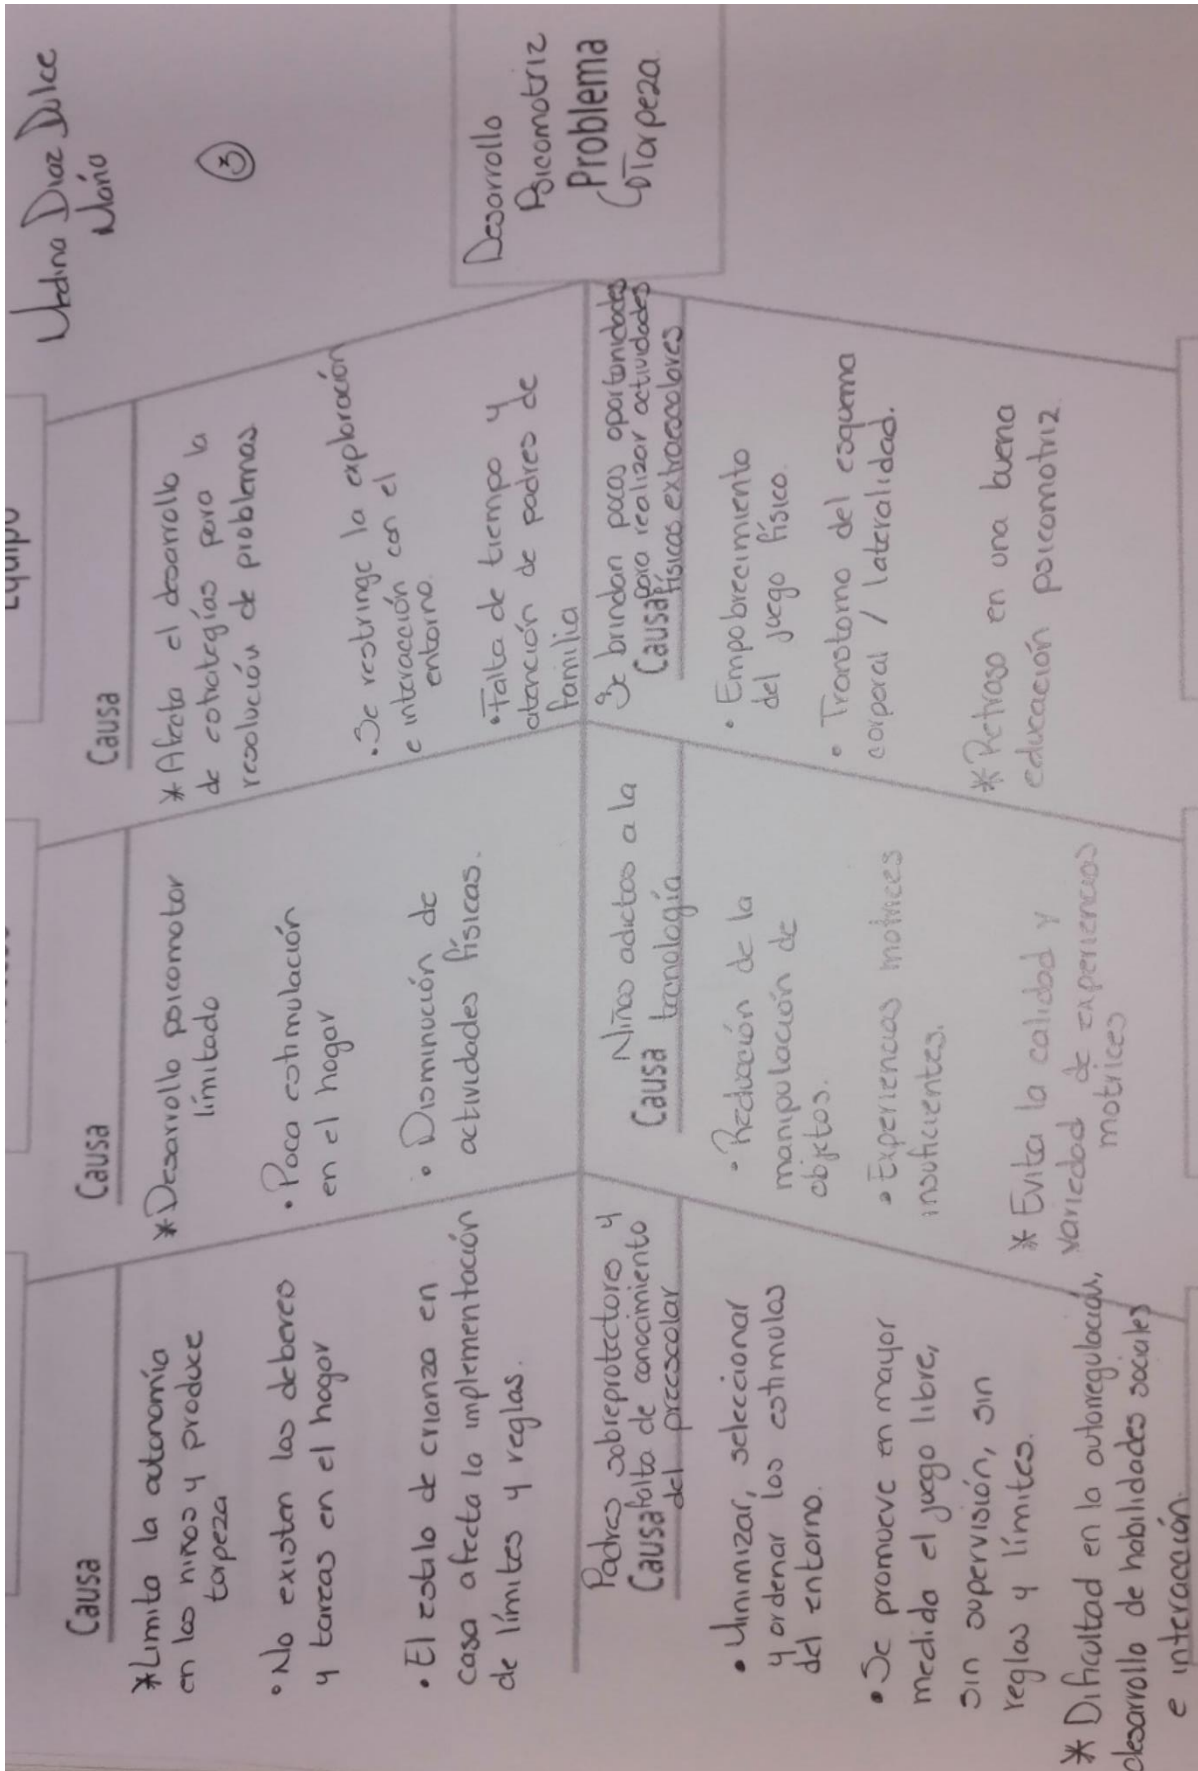 Medina Díaz Dulce
María
3
Equipo
Causa
*Limita la autonomía
en los niños y produce
torpeza
•No existen los deberes
y tareas en el hogar
•El estilo de crianza en
casa afecta la implementación
de límites y reglas.
Causa
*Desarrollo psicomotor
límitado
•Poca estimulación
en el hogar
•Disminución de
actividades físicas.
Causa
*Afecta el desarrollo
de estrategías para la
resolución de problemas
•Se restringe la exploración
e interacción con el
entorno.
•Falta de tiempo y
atención de padres de
familia
Desarrollo
Psicomotriz
Problema
Torpeza.
Padres sobreprotectores y
Causa falta de conocimiento
del preescolar
•Minimizar, seleccionar
y ordenar los estímulos
del entorno.
•Se promueve en mayor
medida el juego libre,
sin supervisión, sin
reglas y límites.
*Dificultad en la autorregulación,
desarrollo de habilidades sociales
e interacción.
Niños adictos a la
Causa tecnología
•Reducción de la
manipulación de
objetos.
•Experiencias motrices
insuficientes.
*Evita la calidad y
variedad de experiencias
motrices
Se brindan pocas oportunidades
Causa para realizar actividades
físicas extraescolares
•Empobrecimiento
del juego físico.
•Transtorno del esquema
corporal / lateralidad.
*Retraso en una buena
educación psicomotriz